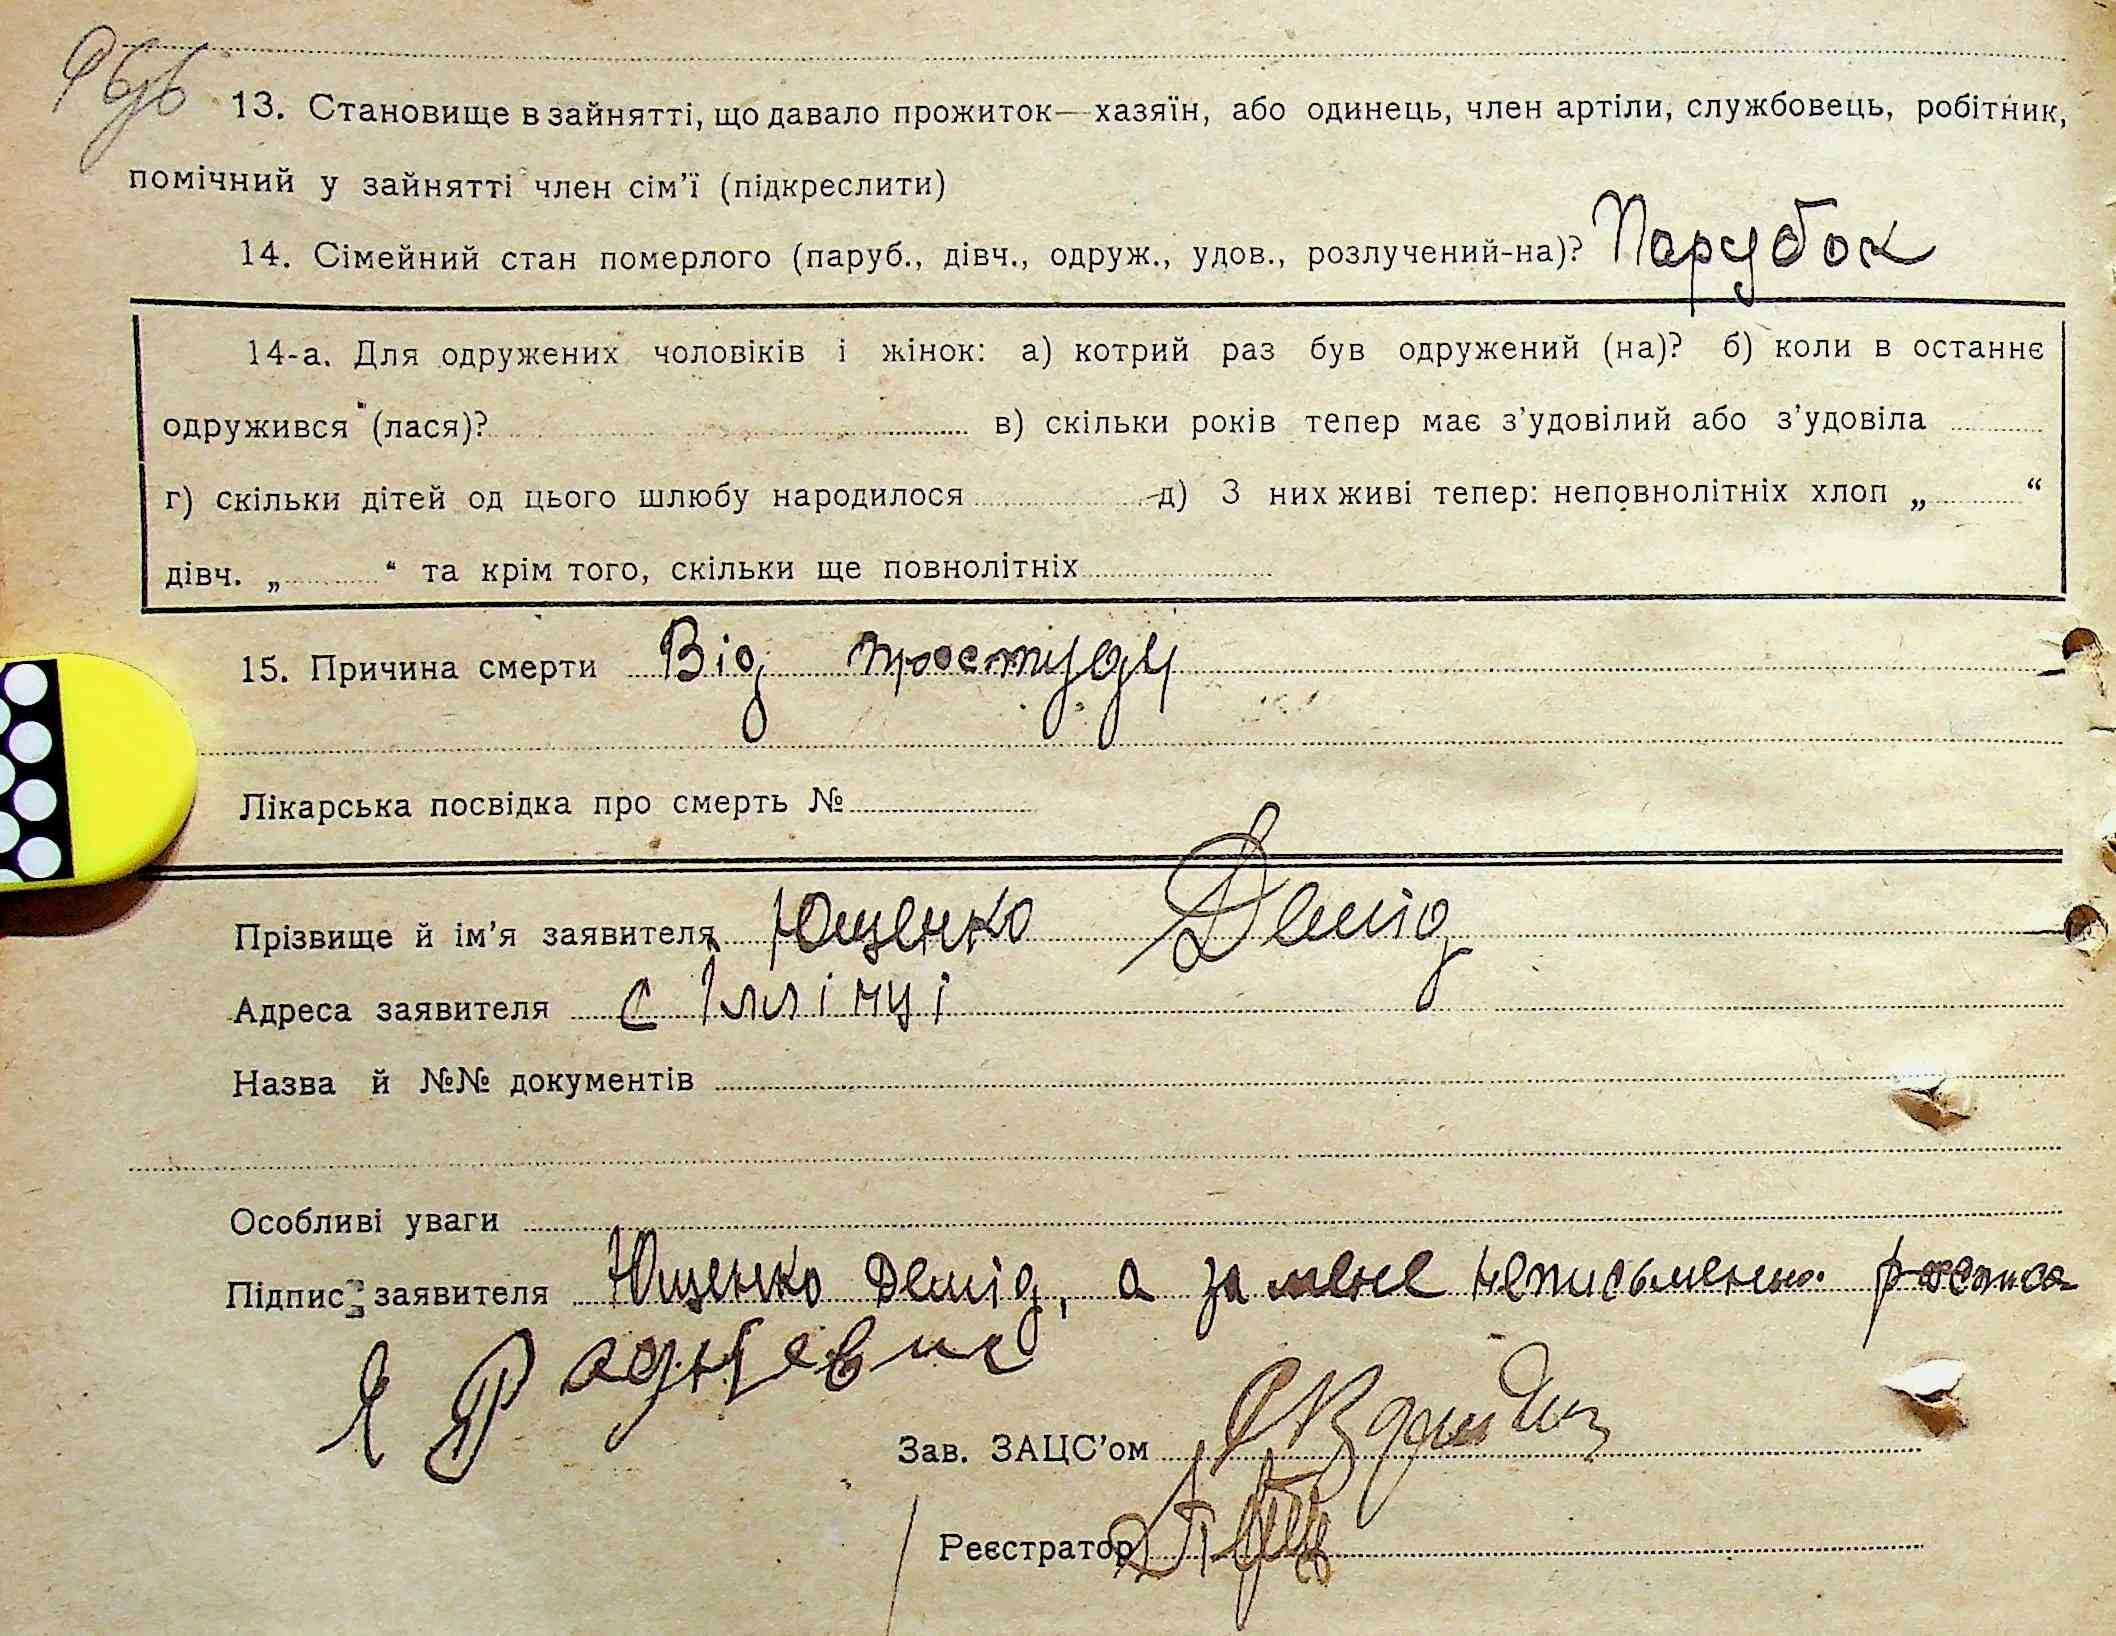 13. Становище в зайнятті, що давало прожиток—хазяїн, або одинець, член артіли, службовець, робітник,
помічний у зайнятті член сім'ї (підкреслити)
14. Сімейний стан померлого (паруб., дівч., одруж., удов., розлучений-на)? Парубок
14-а. Для одружених чоловіків і жінок: а) котрий раз був одружений (на)? б) коли в останнє
одружився (лася)? в) скільки років тепер має з'удовілий або з'удовіла
г) скільки дітей од цього шлюбу народилося д) З них живі тепер: неповнолітніх хлоп „ “
дівч. „ “ та крім того, скільки ще повнолітніх
15. Причина смерти Від простуди
Лікарська посвідка про смерть №
Прізвище й ім'я заявителя Ющенко Демід
Адреса заявителя с Іллінці
Назва й №№ документів
Особливі уваги
Підпис заявителя Ющенко Демід, а за мене
Зав. ЗАЦС'ом
Реєстратор